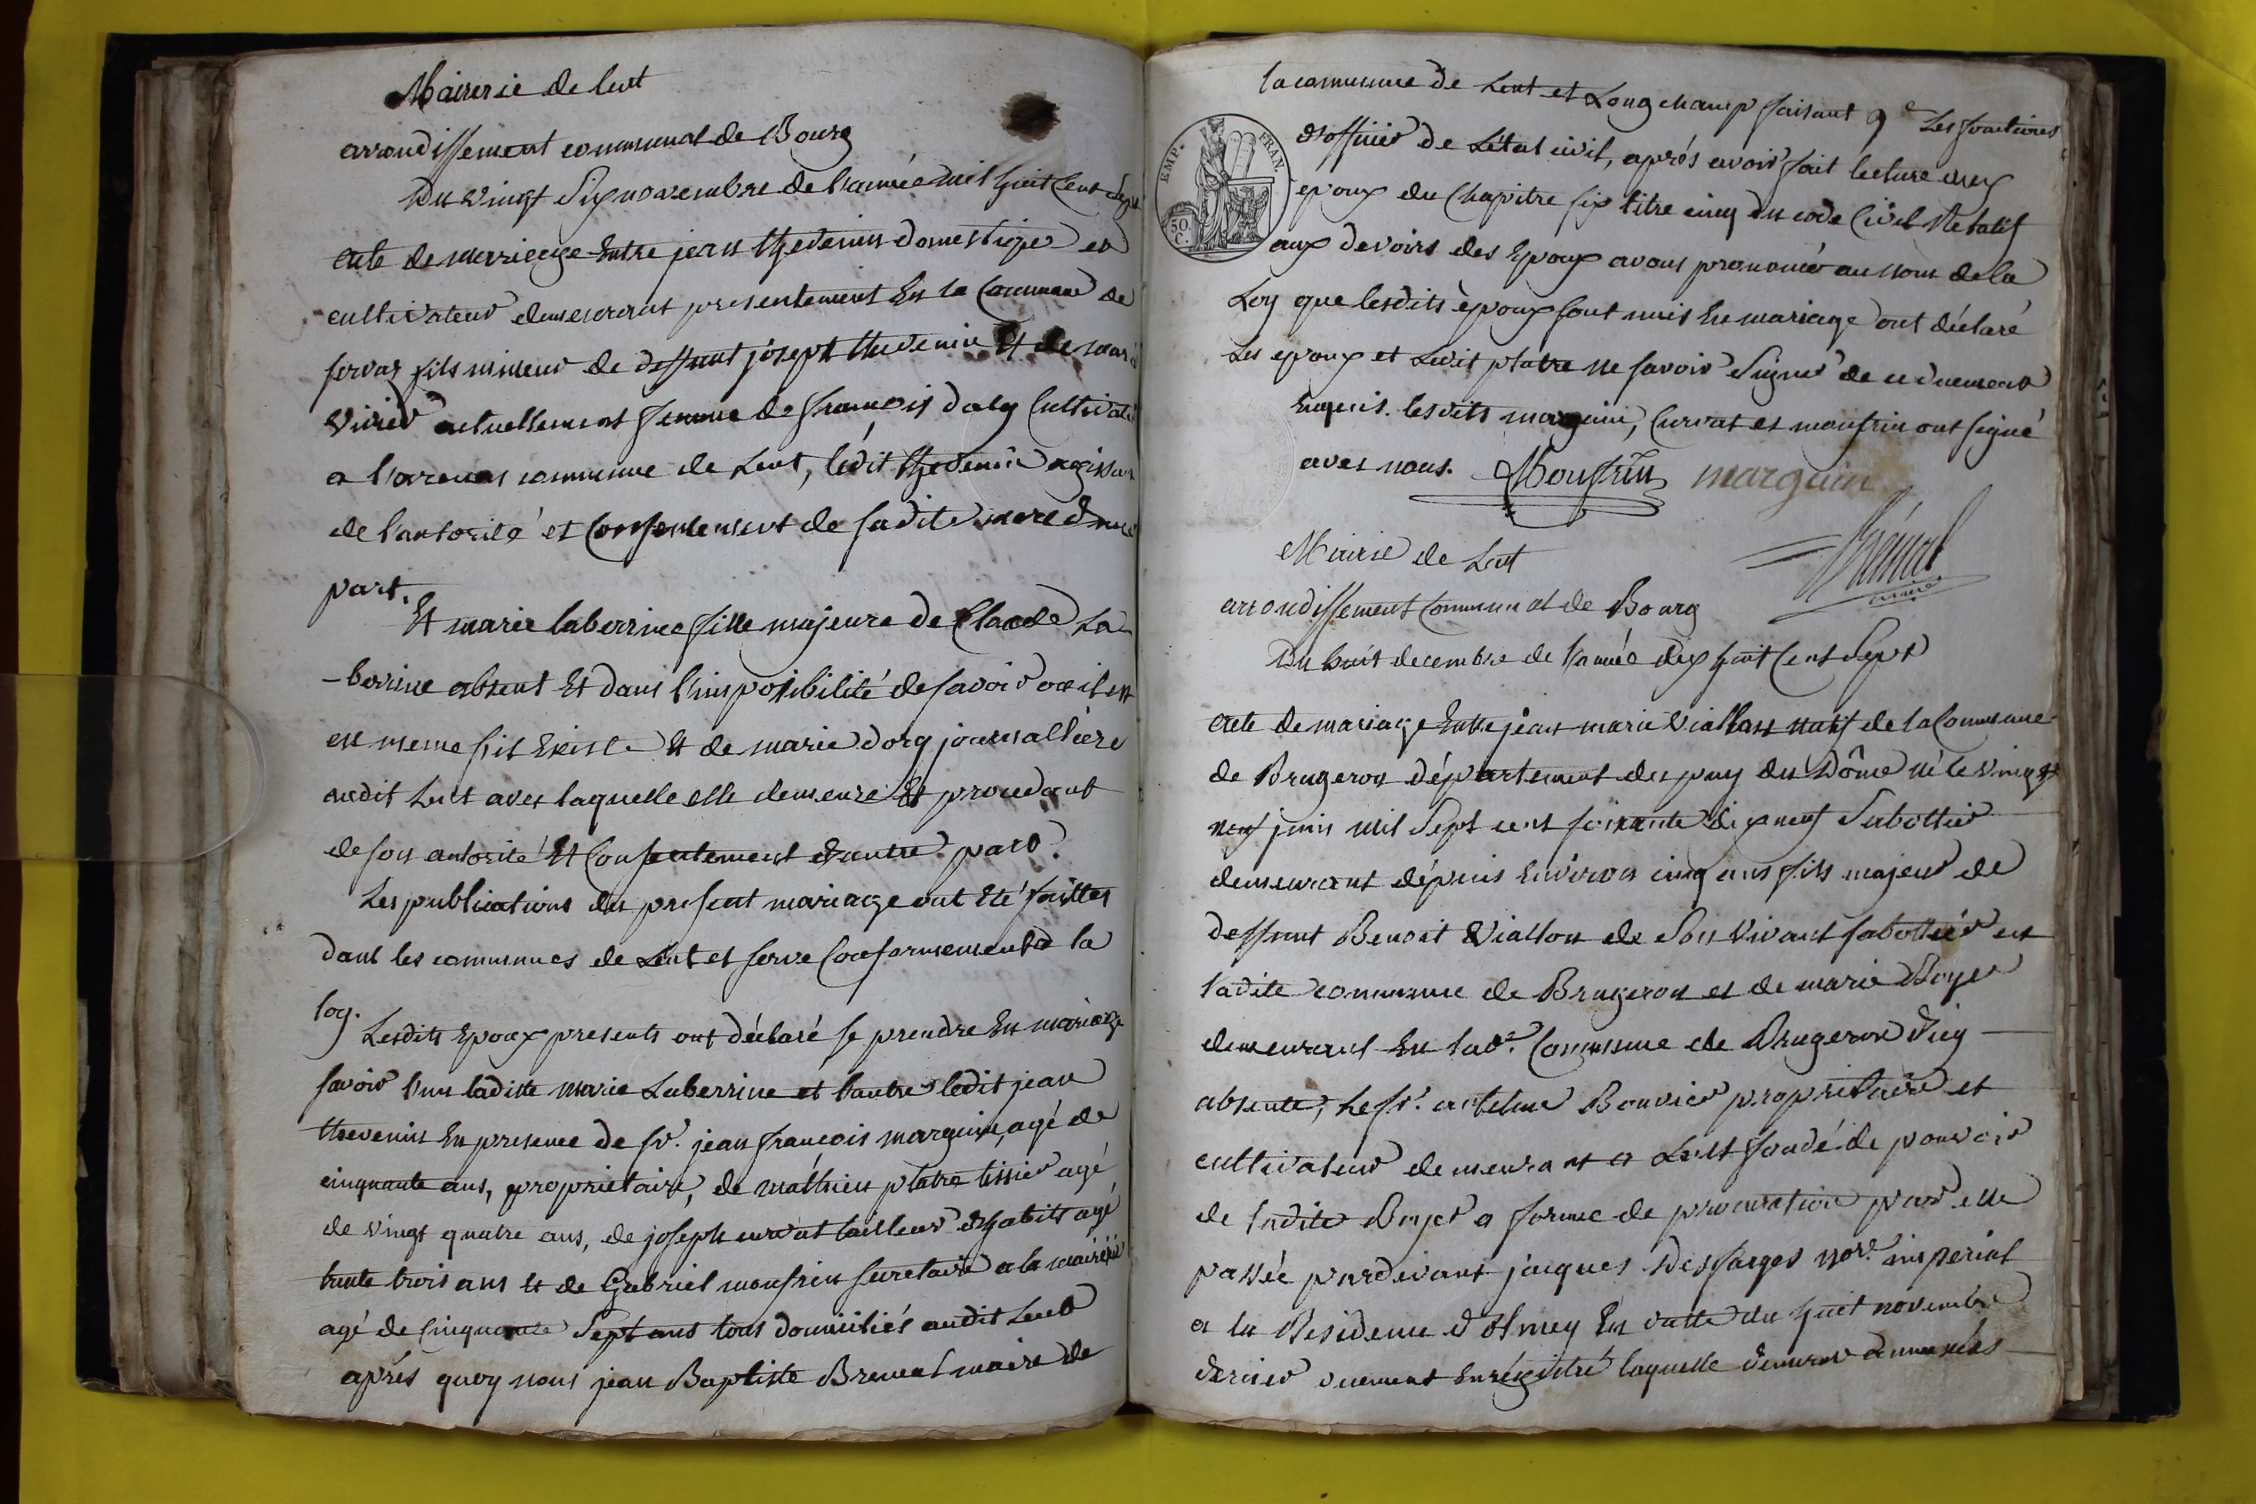 Mairerie de lent
arrondissement communal de Bourg
Du vingt Six novembre de l'année mil huit Cent sept
acte de mariage Entre jean thevenin domestique et
cultivateur demeurant presentement En la Commune de
servas fils mineur de deffunt joseph thevenin Et de marie
actuellement femme de françois dorg Cultivateur
a commune de Lent, ledit thevenin agissant
de l'autorité et Consentement de sadite mere d'une
part.
Et marie laberrine fille majeure de Claude La-
-berrine absent Et dans l'impossibilité de savoir ou il est
en meme s'il Existe Et de marie dorg journalliere
audit Lent avec laquelle elle demeure Et procedant
de son autorité Et Consentement d'autre part.
Les publications du present mariage ont Eté faittes
dans les communes de Lent et serva Conformement a la
loy.
Lesdits Epoux presents ont déclaré se prendre En mariage
savoir l'un ladite Marie Laberrine et l'autre ledit jean
thevenin En presence de sr. jean françois marguin, agé de
cinquante ans, proprietaire, de mathieu platre tissier agé
de vingt quatre ans, de joseph curvat tailleur d'habits agé
trente trois ans Et de Gabriel monfrin secretaire a la mairerie
agé de Cinquante Sept ans tous domiciliés audit Lent
aprés quoy nous jean Baptiste Brenal maire de
la commune de Lent et Longchamp faisant Les fonctions
EMP. FRAN.
50. C.
d'officier de L'état civil, aprés avoir fait lecture aux
epoux du Chapitre six titre cinq du code Civil Relatif
aux devoirs des Epoux avons prononcé au nom de la
Loy que lesdits époux sont unis En mariage ont déclaré
Les epoux et Ledit platre ne savoir Signer de ce duement
Enquis. lesdits marguin, Curvat et monfrin ont signé
avec nous. Monfrin marguin
Brenal
maire
Mairie de Lent
arrondissement Communal de Bourg
Du huit decembre de l'année dix huit Cent Sept
acte de mariage Entre jean marie Viallon natif de la Commune
de Brugeron département du puy du Dôme né le vingt
neuf juin mil Sept cent soixante dix neuf Sabottier
demeurant dépuis Environ cinq ans fils majeur de
deffunt Benoit Viallon de Son Vivant sabottier en
ladite commune de Brugeron et de marie Boyer
demeurant En lade. Commune de Brugeron Icy
absente, Le sr. antelme Bouvier propriétaire et
cultivateur demeurant a Lent fondé de pouvoir
de ladite Boyer a forme de procuration par elle
passée pardevant jacques Desfarges nore. imperial
a la Residence d'olmey En datte du huit novembre
dernier duement Enrégistré laquelle demeure annexée